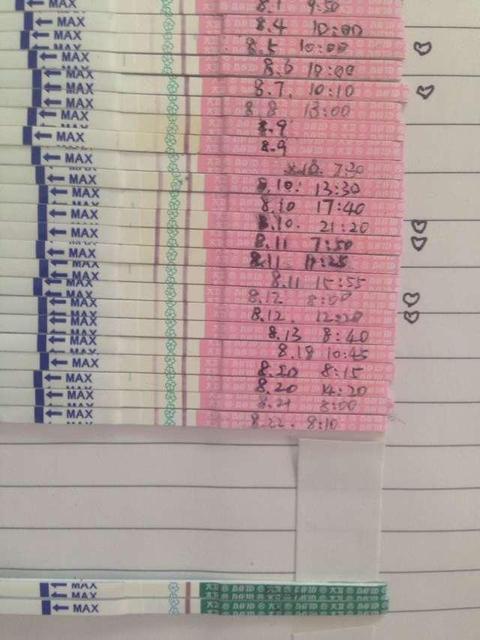 MAX 8.1 9:50
MAX 8.4 10:00
MAX 8.5 10:00
MAX 8.6 10:00
MAX 8.7. 10:10
MAX 8.8 13:00
MAX 8.9
MAX 8.9
MAX 7:30
MAX 8.10. 13:30
MAX 8.10 17:40
MAX 8.10. 21:20
MAX 8.11 7:50
MAX 8.11
MAX 8.11 15:55
MAX 8.12 8:00
MAX 8.12. 12:20
MAX 8.13 8:40
MAX 8.18 10:45
MAX 8.20 8:15
MAX 8.20 14:20
MAX 8.21 8:00
MAX 8.22. 8:10
MAX
MAX